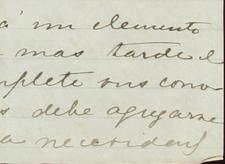 á un elemento
mas tarde el
mplete sus cono
s debe agregarse
a necesidad